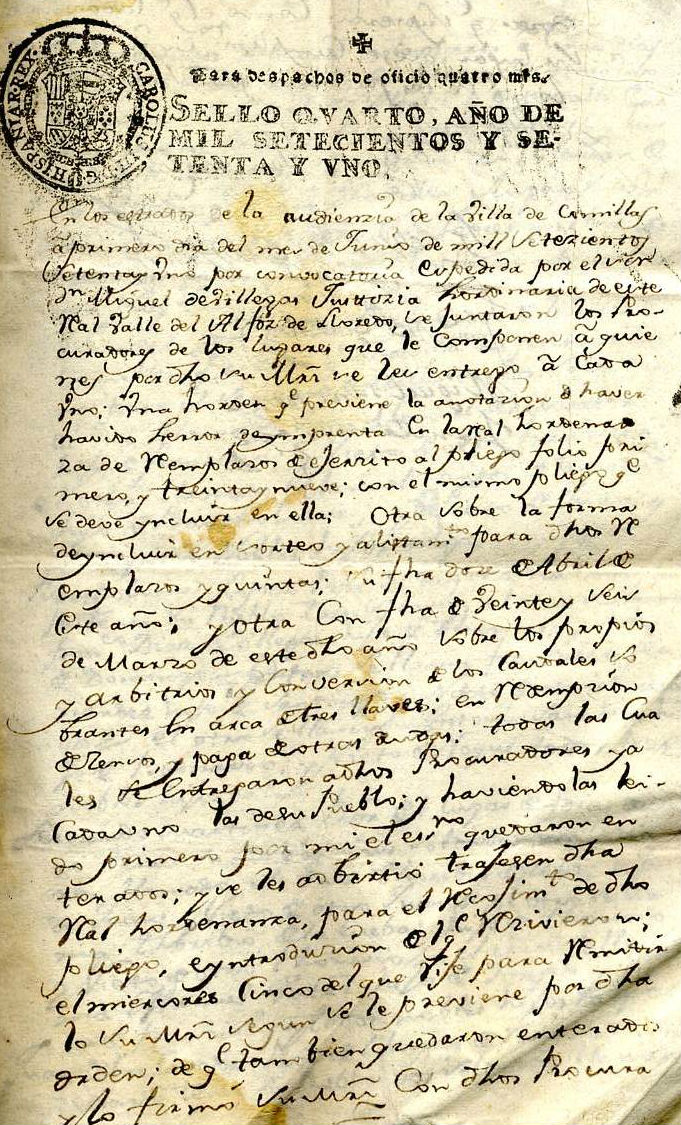 HISPANIAR·REX· CAROLUS·III·D·G·
Para despachos de oficio quatro mrs.
SELLO QVARTO, AÑO DE
MIL SETECIENTOS Y SE-
TENTA Y VNO.
En los estrados de la audienzia de la Villa de Comillas
a primero dia del mes de Junio de mill Setezientos
Setenta y Uno por convocatoria espedida por el Señ
dn Miguel de Villegas Justizia hordinaria de este
Real Valle del Alfoz de Lloredo, se juntaron los Pro-
curadores de los lugares que le Componen a quie
nes por dho su Mrd se les entrego a Cada
Uno; Una horden qe previene la anotazion de haver
havido herror de ymprenta En la Real hordenan
za de Remplazos de Exerzito al pliego folio pri
mero, y treinta y nueve; con el mismo pliego qe
se deve yncluir en ella; Otra sobre la forma
de yncluir en sorteo y alistamto para dhos Re
emplazos y quintas; su fha doze de Abril de
Este año; y otra Con fha de Veinte y seis
de Marzo de este dho año sobre los propios
y arbitrios y Conversion de los Caudales so
brantes En arca de tres llaves; en Redempzion
de Zensos, y paga de otras deudas; todas las Cua
les se Entregaron a dhos Procuradores y a
Cada uno las de su Pueblo; y haviendolas lei-
do primero por mi el essno quedaron en
terados; y se les adbirtio trajesen dha
Real hordenanza, para el Recojimto de dho
pliego, e yntroduzion del qe Rezivieron;
el miercores Cinco del que Rije para Remitir
lo su Mrd segun se le previene por dha
orden; de qe tambien quedaron enterados
y lo firmó su Mrd Con dhos Procura